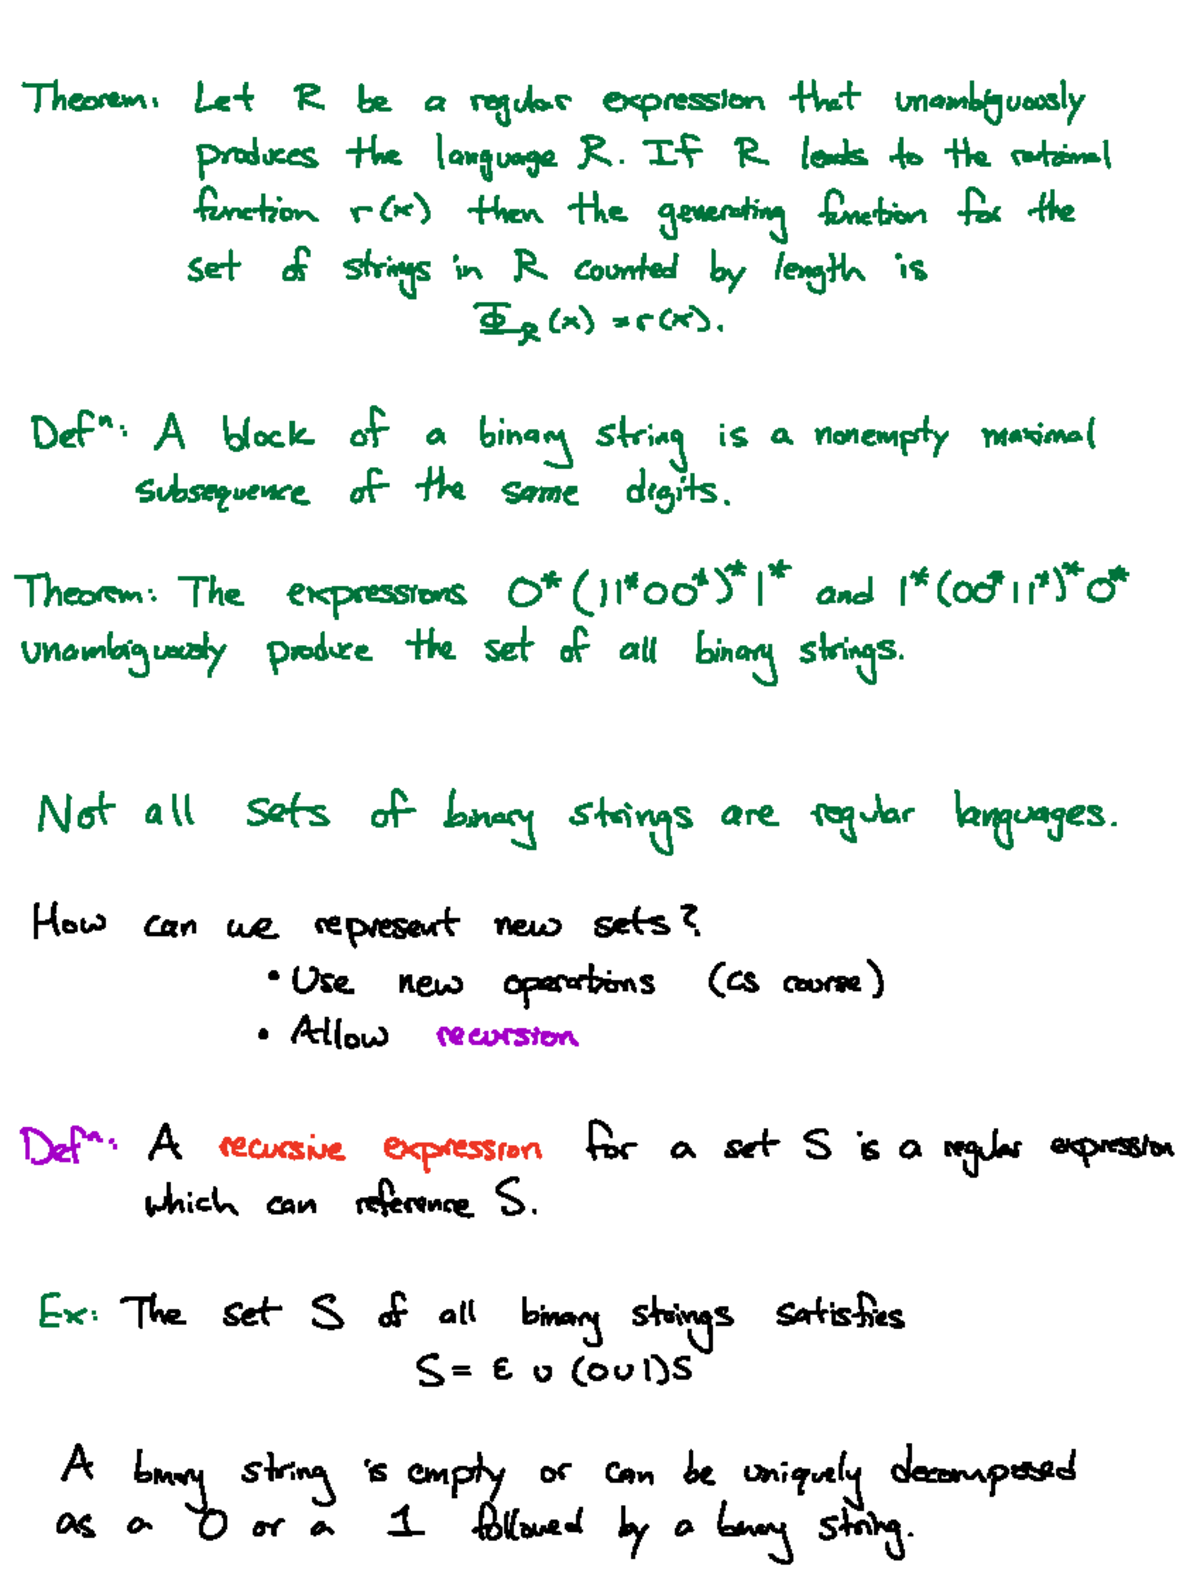 Theorem: Let R be a regular expression that unambiguously
produces the language ℛ. If R leads to the rational
function r(x) then the generating function for the
set of strings in ℛ counted by length is
Φ_ℛ(x) = r(x).
Defⁿ: A block of a binary string is a nonempty maximal
subsequence of the same digits.
Theorem: The expressions 0*(11*00*)*1* and 1*(00*11*)*0*
unambiguously produce the set of all binary strings.
Not all sets of binary strings are regular languages.
How can we represent new sets?
• Use new operations (CS course)
• Allow recursion
Defⁿ: A recursive expression for a set S is a regular expression
which can reference S.
Ex: The set S of all binary strings satisfies
S = ε ∪ (0∪1)S
A binary string is empty or can be uniquely decomposed
as a 0 or a 1 followed by a binary string.